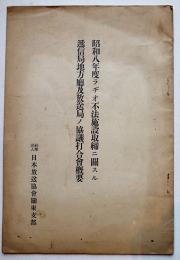 昭和八年度ラヂオ不法施設取締ニ關スル
遞信局地方廳及放送局ノ協議打合會概要
社團法人 日本放送協會關東支部